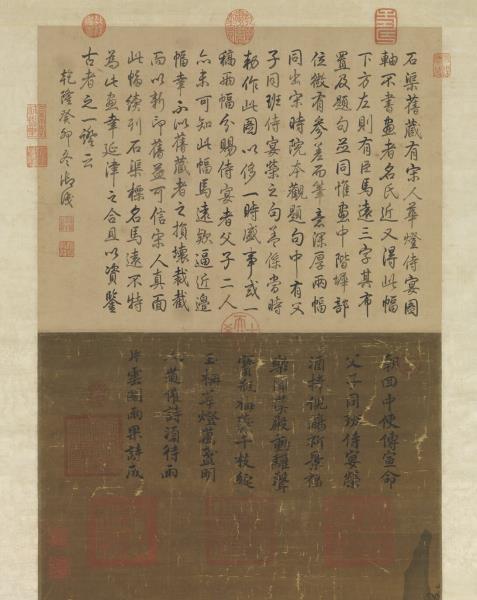 石渠舊藏有宋人華燈侍宴圖
軸不書畫者名氏近又得此幅
下方左則有臣馬遠三字其布
置及題句並同惟畫中階墀部
位微有參差而筆意深厚兩幅
同出宋時院本觀題句中有父
子同班侍宴榮之句蓋係當時
勑作此圖以侈一時盛事或一
稿兩幅分賜侍宴者父子二人
亦未可知此幅馬遠款逼近邊
幅幸不似舊藏者之損壞裁截
而以新印舊益可信宋人真面
此幅續列石渠標名馬遠不特
為此畫幸延津之合且以資鑒
古者之一證云
乾隆癸卯冬御識
朝回中使傳宣命
父子同班侍宴榮
酒捧觴祈景福
樂聞漢殿動驩聲
寶瓶梅蕊千枝綻
玉柵華燈萬盞明
人道催詩須待雨
片雲閣雨果詩成